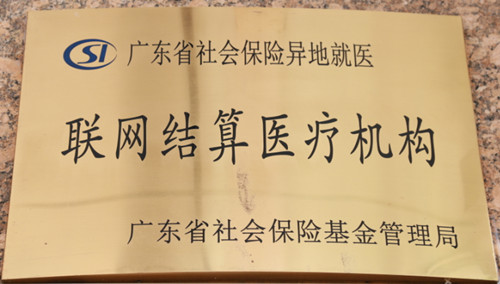 CSI 广东省社会保险异地就医
联网结算医疗机构
广东省社会保险基金管理局